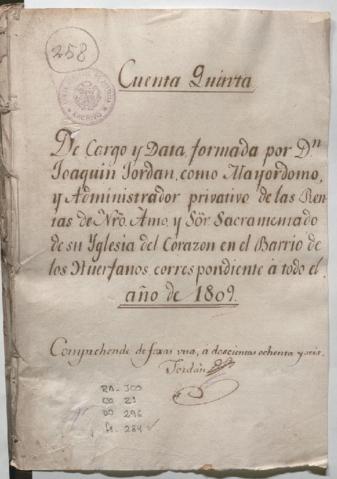 258
Cuenta Quinta
De Cargo y Data, formada por Dn
Joaquin Jordan, como Mayordomo,
y Administrador privativo de las Ren
tas de Nrô. Amo, y Sôr. Sacramentado
de su Yglesia del Corazon en el Barrio de
los Huerfanos, correspondiente à todo el
año de 1809.
Comprehende de foxas una, a doscientas ochenta y seis.
Jordán
RA-300
CO 21
DO 296
fs. 284